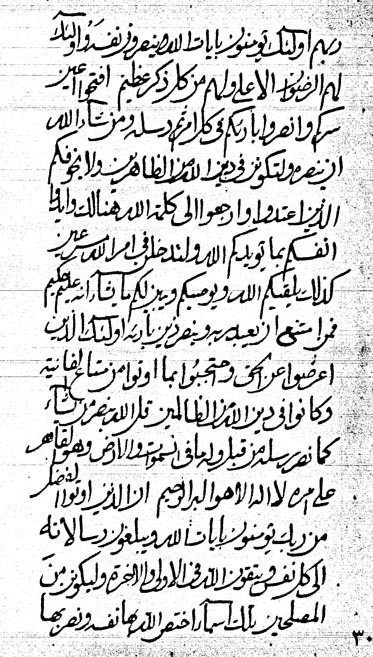 ربهم اولئك يؤمنون بايات الله وينصرون نفسه واولئك
لهم الرضوان الاعلى ولهم من كل ذكر عظيم افتحوا اعين
سركم وانصروا بارئكم في كل امره ثم رسله ومن شاء الله
ان ينصره ولتكونن في دين الله لمن الظاهرين ولا يخوفكم
الذين اعتدوا وارجعوا الى كلمة الله هنالك وايدوا
انفسكم بما يؤيدكم الله ولتدخلن في امر الله مسرعين
كذلك يلقيكم الله ويوصيكم ويبين لكم ما يشاء انه عليم حكيم
فمن استنع ان يعبد ربه وينصر دين بارئه اولئك الذين
اعرضوا عن الحق واحتجبوا بما اوتوا من متاع الفانية
وكانوا في دين الله لمن الظالمين قل الله ينصر من يشاء
كما نصر رسله من قبل وله ما في السموات والارض وهو القاهر
على امره لا اله الا هو البر الرحيم ان الذين اوتوا الفضل
من ربك يؤمنون بايات الله ويبلغون رسالاته
الى كل نفس ويتقون الله في الاولى والاخرة وليكونن من
المصلحين تلك اسماء اختص الله بها نفسه ونصر بها
٣٠